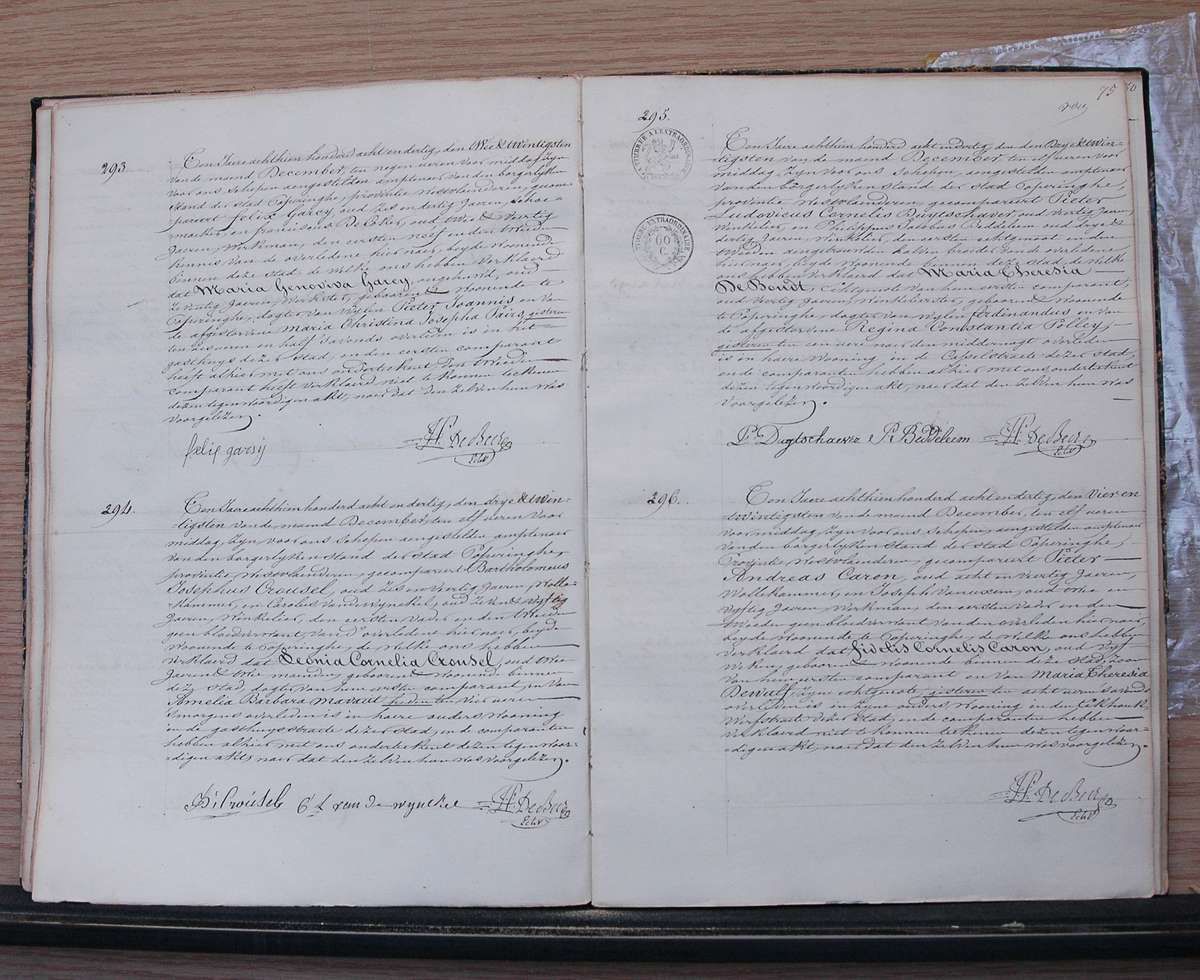 293.
Ten Jaere achthien honderd acht en dertig, den twée & twintigsten
van de maend December, ten negen ueren voor middag, zyn
voor ons Schepen aengestelden amptenaer van den borgerlyken
stand der stad Poperinghe, provintie Westvlanderen, gecom-
pareert Felix Garcy, oud zes en dertig Jaeren, schoe-
maeker en Franciscus De Coker, oud twée & veertig
Jaeren, Werkman, den eersten neef en den tweeden
kennis van de overledene hier naer, beyde woonende
binnen deze stad de welke ons hebben verklaerd
dat Maria Genoviva Garcy, ongehuwd, oud
zeventig Jaeren, Werkster, geboren & woonende te
Poperinghe, dogter van wylen Pieter Joannis en van
de afgestorvene Maria Christina Josepha Pairs, gisteren
ten zes uren en half s'avonds overleden is in het
gasthuys dezer stad, en den eersten comparant
heeft alhier met ons onderteekent den tweeden
comparant heeft verklaerd niet te konnen teekenen
dezen tegenwoordigen akt, naer dat den zelven hun was
voorgelezen.
felix garsÿ HL De Beer
Schep
294.
Ten Jaere achthien honderd acht en dertig, den drye & twin-
tigsten van de maend December, ten elf ueren voor
middag, zyn voor ons Schepen aengestelden amptenaer
van den borgerlyken stand der stad Poperinghe,
provintie Westvlanderen, gecompareert Bartholomeus
Josephus Crousel, oud zes en veertig Jaeren, Wolle-
kammer, en Carolus Vandewynckel, oud
Jaeren, Winkelier, den eersten vader en den tweeden
geen bloedverwant van d'overledene hier naer, beyde
woonende te Poperinghe, de welke ons hebben
verklaerd dat Leonia Cornelia Crousel, oud twee
Jaeren & twee maenden, geboren & woonende binnen
deze stad, dogter van hem eersten comparant, en van
Amelia Barbara Mavaut, heden ten vier ueren
s'morgens overleden is in haere ouders wooning
in de gasthuysstraete dezer stad, en de comparanten
hebben alhier met ons onderteekent dezen tegenwoor-
digen akt, naer dat den zelven hun was voorgelezen.
B: Crousel C: L van de wynckel HL De Beer
Schep
75
295.
Ten Jaere achthien honderd acht en dertig, den drye & twin-
tigsten van de maend December, ten elf ueren voor
middag, zyn voor ons Schepen, aengestelden amptenaer
van den borgerlyken stand der stad Poperinghe,
provintie Westvlanderen, gecompareert Pieter
Ludovicus Cornelis Duytschaver, oud veertig Jaeren,
Winkelier, en Philippus Jacobus Beddelem oud drye &
dertig Jaeren, Winkelier, den eersten echtgenoot en den
tweeden aengetrouwden halven broeder van de overledene
hier naer, beyde woonende binnen deze stad, de welke
ons hebben verklaerd dat Maria Theresia
De Boudt, echtgenote van hem eersten comparant,
oud veertig Jaeren, Winkelierster, geboren & woonende
te Poperinghe, dogter van wylen Ferdinandus en van
de afgestorvene Regina Constantia Polley,
gisteren ten een uer naer den middernagt overleden
is in haere wooning, in de Casselstraete dezer stad,
en de comparanten hebben alhier met ons onderteekent
dezen tegenwoordigen akt, naer dat den zelven hun was
voorgelezen.
P. Duytschaever P. Beddelem HL De Beer
Schep
296.
Ten Jaere achthien honderd acht en dertig, den vier en
twintigsten van de maend December, ten elf ueren
voor middag, zyn voor ons Schepen, aengestelden amptenaer
van den borgerlyken stand der stad Poperinghe,
Provintie Westvlanderen, gecompareert Pieter
Andreas Caron, oud acht en veertig Jaeren,
Wollekammer, en Joseph Vanuxem, oud twee en
vyftig Jaeren, Werkman, den eersten vader en den
tweeden geen bloedverwant van d'overledene hier naer,
beyde woonende te Poperinghe, de welke ons hebben
verklaerd dat Fidelis Cornelis Caron, oud vyf
weken, geboren & woonende binnen deze stad, zoon
van hem eersten comparant en van Maria Theresia
Dewulf zyne echtgenote gisteren ten acht ueren s'avonds
overleden is in zyne ouders wooning in de
Werfstraete dezer stad, en de comparanten hebben
verklaerd niet te konnen teekenen dezen tegenwoor-
digen akt, naer dat den zelven hun was voorgelezen.
HL De Beer
Schep